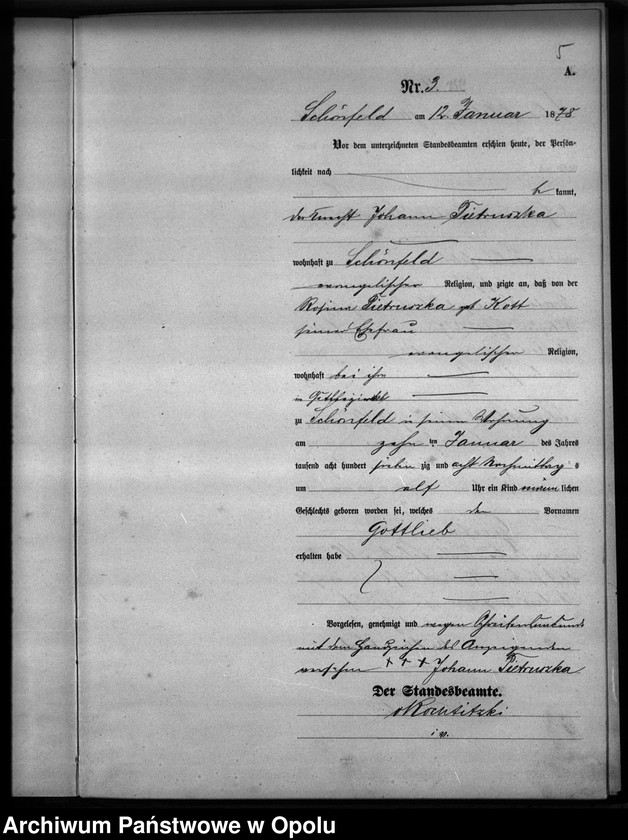 5
A.
Nr. 3.
Schönfeld am 12. Januar 1878
Vor dem unterzeichneten Standesbeamten erschien heute, der Persön-
lichkeit nach
be kannt,
der Knecht Johann Pietruszka
wohnhaft zu Schönfeld
evangelischer Religion, und zeigte an, daß von der
Rosina Pietruszka geb Kott
seiner Ehefrau
evangelischer Religion,
wohnhaft bei ihm
in
zu Schönfeld in seiner Wohnung
am zehn ten Januar des Jahres
tausend acht hundert sieben zig und acht Nachmittag s
um elf Uhr ein Kind männ lichen
Geschlechts geboren worden sei, welches den Vornamen
Gottlieb
erhalten habe
Vorgelesen, genehmigt und wegen Schreibensunkunde
mit dem Handzeichen des Anzeigenden
versehen + + + Johann Pietruszka
Der Standesbeamte.
Kochtitzki
Archiwum Państwowe w Opolu